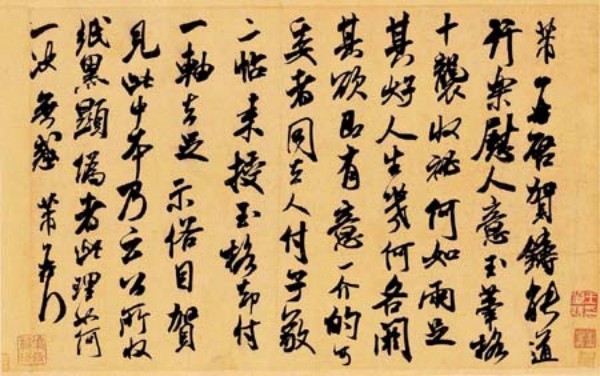 芾頓首啓賀鑄能道
行樂慰人意玉筆格
十襲收祕何如兩足
其好人生幾何各閼
其欲即有意一介的可
委者同去人付子敬
二帖來授玉格却付
一軸去足示俗目賀
見此中本乃云公所收
紙黑顯僞者此理如何
一決無惑芾頓首